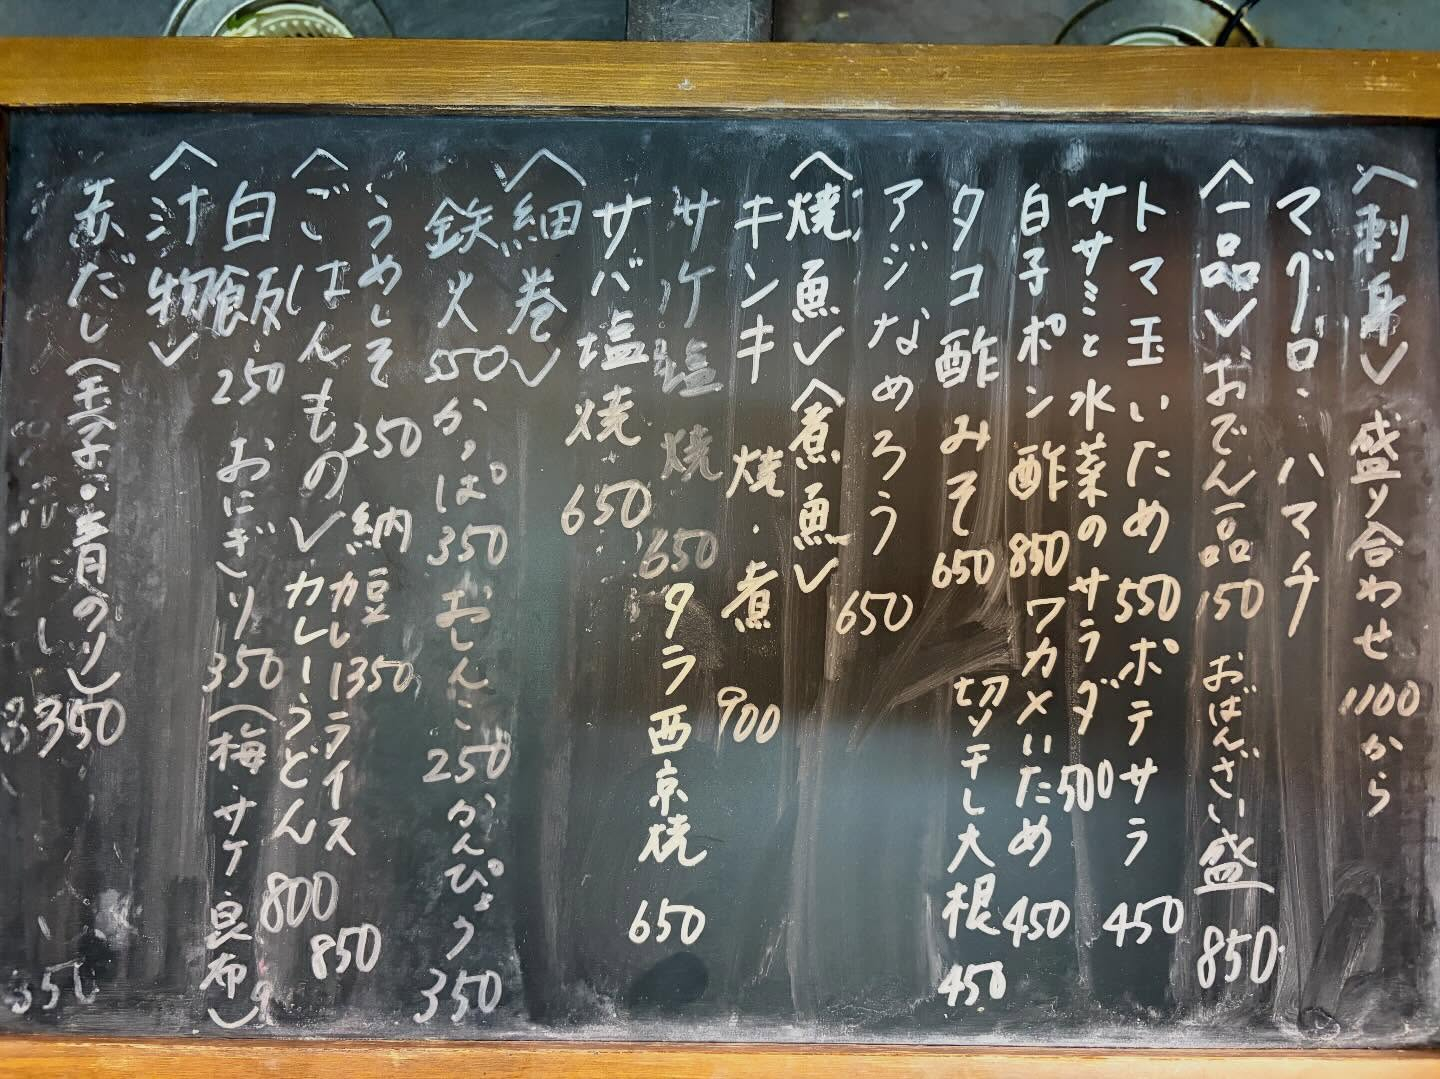 〈刺身〉盛り合わせ 1100から
マグロ・ハマチ
〈一品〉おでん一品150 おばんざい盛 850
トマ玉いため 550 ポテサラ 450
ササミと水菜のサラダ 500
白子ポン酢 850 ワカメいため 450
タコ酢みそ 650 切り干し大根 450
アジなめろう 650
〈焼魚〉〈煮魚〉
キンキ 焼・煮 900
サケ塩焼 650 タラ西京焼 650
サバ塩焼 650
〈細巻〉
鉄火 550 かっぱ 350 おしんこ 250 かんぴょう 350
うめしそ 250 納豆 350
〈ごはんもの〉カレーライス 850
カレーうどん 800
白飯 250 おにぎり 350 (梅・サケ・昆布)
〈汁物〉
赤だし(玉子・青のり) 350